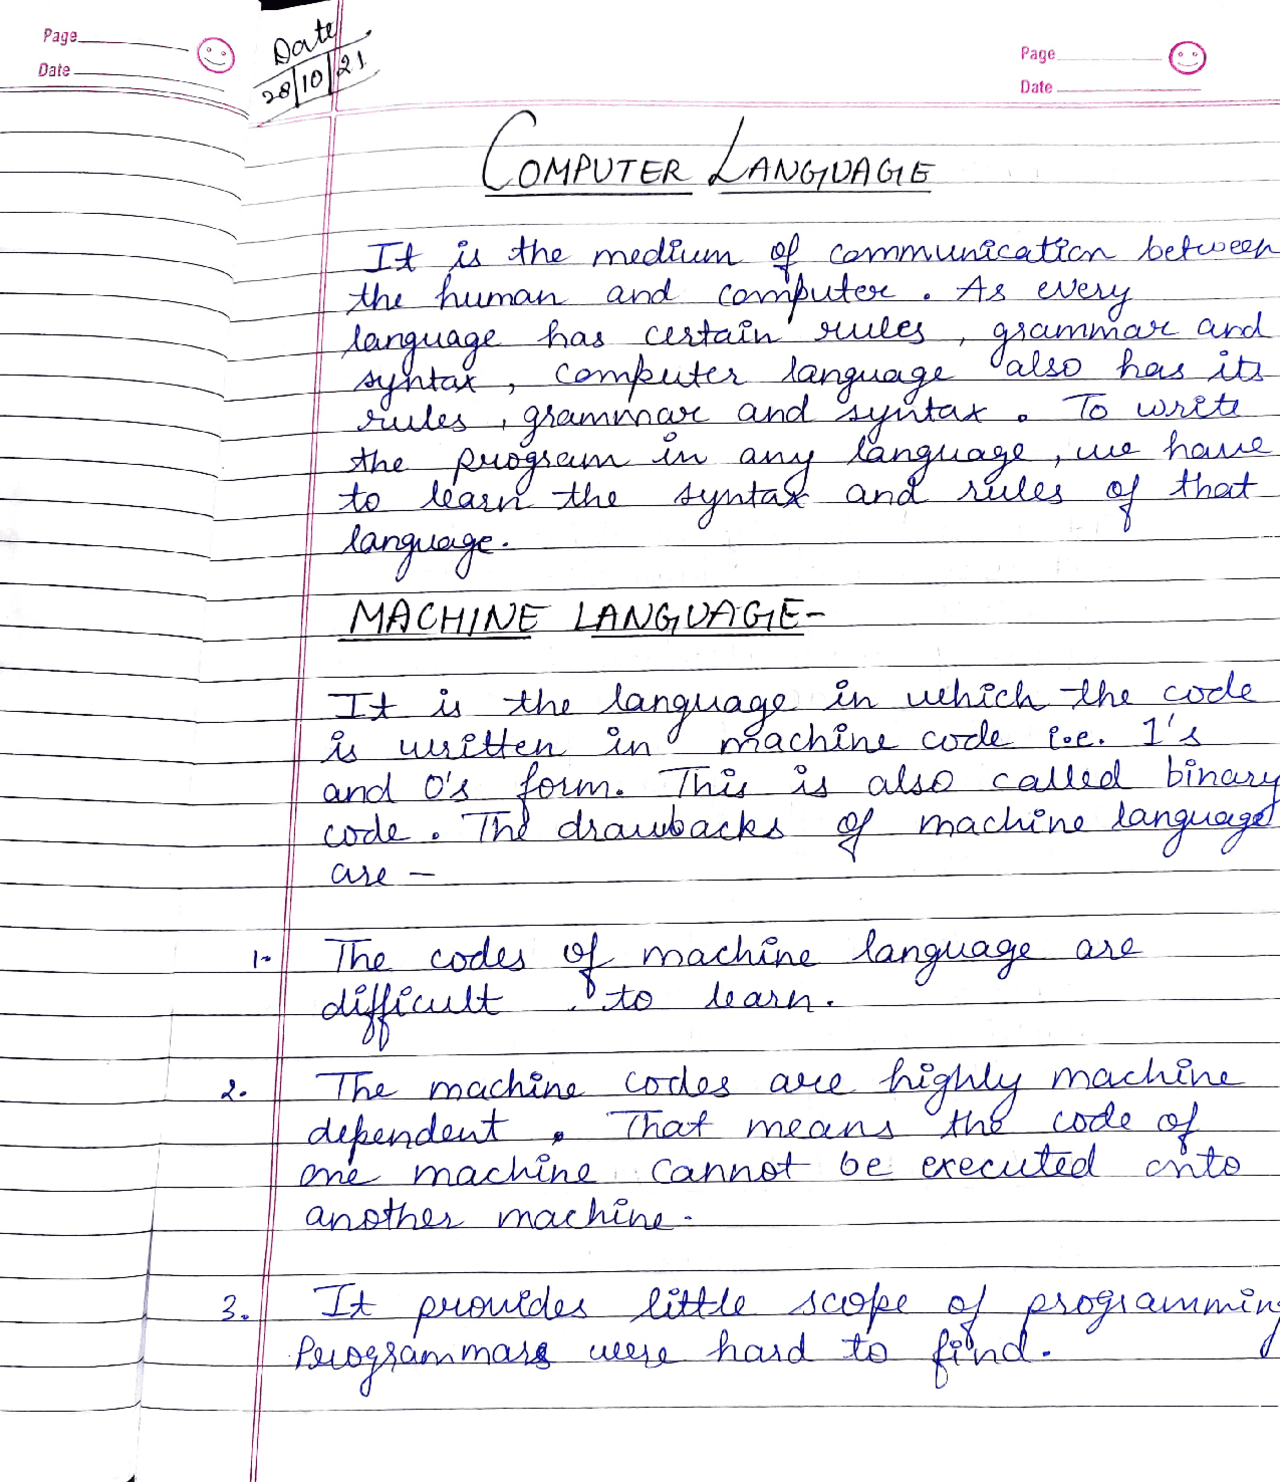 Page
Date
Date
28/10/21
Page
Date
COMPUTER LANGUAGE
It is the medium of communication between
the human and computer. As every
language has certain rules, grammar and
syntax, computer language also has its
rules, grammar and syntax. To write
the program in any language, we have
to learn the syntax and rules of that
language.
MACHINE LANGUAGE-
It is the language in which the code
is written in machine code i.e. 1's
and 0's form. This is also called binary
code. The drawbacks of machine language
are -
1. The codes of machine language are
difficult to learn.
2. The machine codes are highly machine
dependent. That means the code of
one machine cannot be executed onto
another machine.
3. It provides little scope of programming
Programmars were hard to find.